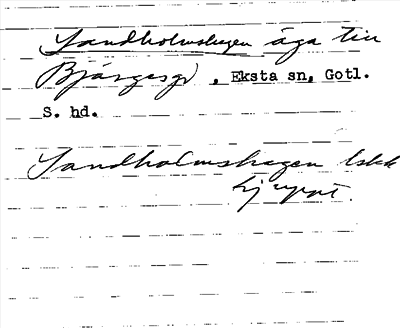 Sandholmshagen äga till
Bjärges gd, Eksta sn, Gotl.
S. hd.
Sandholmshagen
ej uppt.